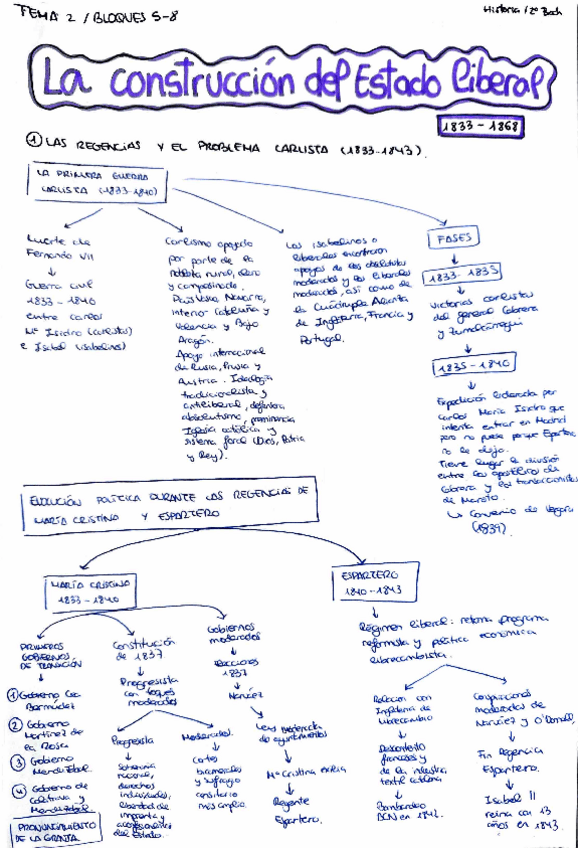 TEMA 2 / BLOQUES 5-8
Historia / 2º Bach
La construcción del Estado liberal
1833 - 1868
① LAS REGENCIAS Y EL PROBLEMA CARLISTA (1833-1843).
LA PRIMERA GUERRA
CARLISTA (1833-1840)
Muerte de
Fernando VII
Guerra civil
1833 - 1840
entre Carlos
Mª Isidro (carlistas)
e Isabel (isabelinos)
Carlismo apoyado
por parte de la
nobleza rural, clero
y campesinado.
País Vasco, Navarra,
interior Cataluña y
Valencia y Bajo
Aragón.
Apoyo internacional
de Rusia, Prusia y
Austria. Ideología
tradicionalista y
antiliberal, defensora
absolutismo,
Iglesia católica y
sistema foral (Dios, Patria
y Rey).
Los isabelinos o
liberales encontraron
apoyos de los absolutistas
moderados y los liberales
moderados, así como de
la Cuádruple Alianza
de Inglaterra, Francia y
Portugal.
FASES
1833-1835
Victorias carlistas
del general Cabrera
y Zumalacárregui
1835-1840
Expedición liderada por
Carlos María Isidro que
intenta entrar en Madrid
pero no puede porque Espartero
no le deja.
Tiene lugar la división
entre los apostólicos de
Cabrera y los transaccionistas
de Maroto.
↳ Convenio de Vergara
(1839).
EVOLUCIÓN POLÍTICA DURANTE LAS REGENCIAS DE
MARÍA CRISTINA Y ESPARTERO
MARÍA CRISTINA
1833 - 1840
ESPARTERO
1840 - 1843
PRIMEROS
GOBIERNOS
DE TRANSICIÓN
① Gobierno Cea
Bermúdez
② Gobierno
Martínez de
la Rosa
③ Gobierno
Mendizábal
④ Gobierno de
Calatrava y
Mendizábal
PRONUNCIAMIENTO
DE LA GRANJA
Constitución
de 1837
Progresista
con toques
moderados
Progresista
Soberanía
nacional,
derechos
individuales,
libertad de
imprenta y
del Estado.
Moderados
Cortes
bicamerales
y sufragio
censitario
más amplio.
Gobiernos
moderados
Elecciones
1837
Narváez
de ayuntamientos
Mª Cristina exilia
Regente
Espartero.
Régimen liberal: retoma programa
reformista y política económica
librecambista.
Relación con
Inglaterra de
librecambio
Descontento
franceses y
de la industria
textil catalana
Bombardeo
BCN en 1842.
Conspiraciones
moderadas de
Narváez y O'Donnell.
Fin Regencia
Espartero.
Isabel II
reina con 13
años en 1843.